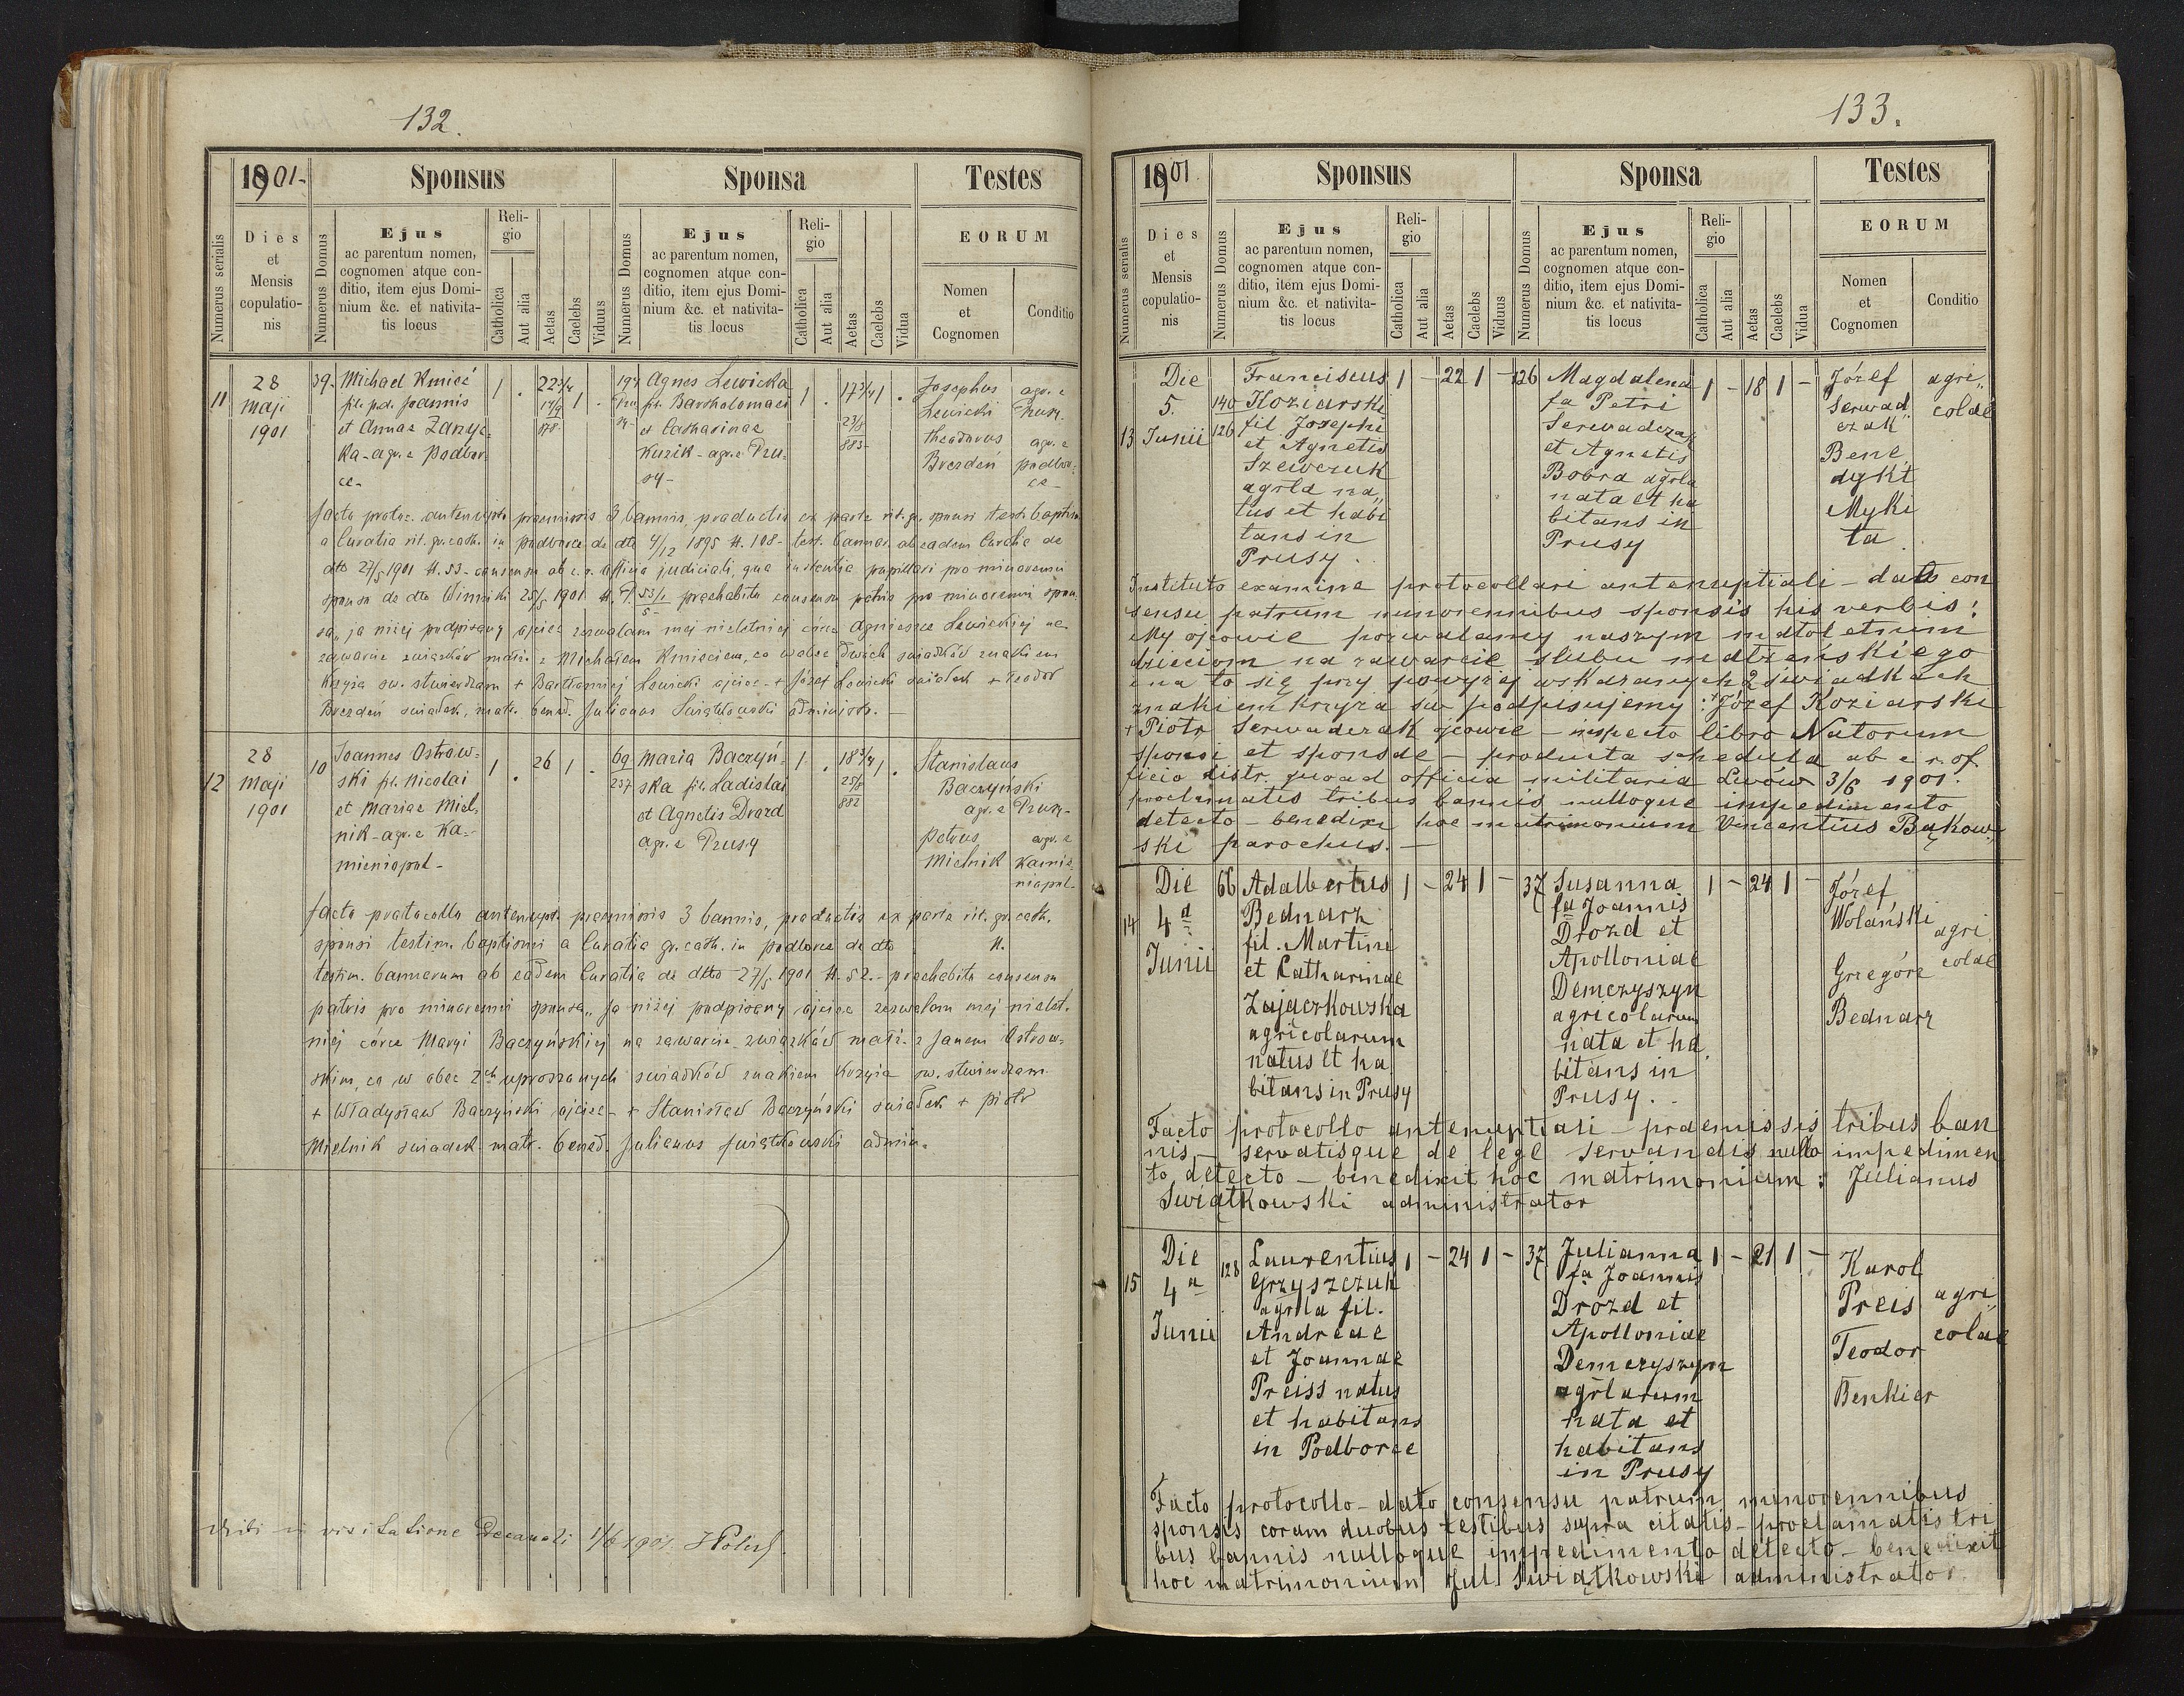 132.
1901-
Sponsus
Sponsa
Testes
Numerus serialis
Dies
et
Mensis
copulatio-
nis
Numerus Domus
Ejus
ac parentum nomen,
cognomen atque con-
ditio, item ejus Domi-
nium &c. et nativita-
tis locus
Reli-
gio
Catholica
Aut alia
Aetas
Caelebs
Viduus
Numerus Domus
Ejus
ac parentum nomen,
cognomen atque con-
ditio, item ejus Domi-
nium &c. et nativita-
tis locus
Reli-
gio
Catholica
Aut alia
Aetas
Caelebs
Vidua
EORUM
Nomen
et
Cognomen
Conditio
11
28
Maji
1901
39.
Michael Kmieć
fil. p.d. Joannis
et Annae
ka - agr. e Podbor-
ce -
1 . 22 3/4 1 .
194
Agnes Lewicka
fil. Bartholomaei
et Catharinae
Kuzik - agr. e Pru-
sy -
1 . 17 3/4 1 .
Josephus
Lewicki
agr. e
Theodorus
Brezdeń
agr. e
podbor-
ce -
facto protoc. antenupt. praemissis 3 bannis, productis ex parte rit. gr. sponsi test. baptism.
a Curatia rit. gr. cath. in Podborce de dto 4/12 1895 N. 108 - test. bannor. ab eadem Curatia de
dto 27/5 1901 N. 53 - consensu ab c. r. officio judiciali, qua instantia pupillari pro minorenni
sponso de dto Winniki 25/5 1901 praehabito consensu patris pro minorenni spon-
sa „ja niżej podpisany ojciec zezwalam mej nieletniej córce Agnieszce Lewickiej na
zawarcie związków małż. z Michałem Kmieciem, co wobec dwóch świadków znakiem
krzyża św. stwierdzam + Bartłomiej Lewicki ojciec - + Józef Lewicki świadek + Teodor
Brezdeń świadek, matr. bened. Julianus Świątkowski administr. -
12
28
Maji
1901
10
Joannes Ostrow-
ski fil. Nicolai
et Mariae Miel-
nik - agr. e Ka-
mieniopol -
1 . 26 1 .
69
237
Maria Baczyń-
ska fil. Ladislai
et Agnetis Drozd
agr. e Prusy
1 . 18 3/4 1 .
25/8
882
Stanislaus
Baczyński
agr. e
Petrus
Mielnik
agr. e
Kamie-
niopol -
facto protocollo antenupt. praemissis 3 bannis, productis ex parte rit. gr. cath.
sponsi testim. baptismi a Curatia gr. cath. in Podborce de dto N.
testim. bannorum ab eadem Curatia de dto 27/5 1901 N. 52. - praehabito consensu
patris pro minorenni sponsa „ja niżej podpisany ojciec zezwalam mej nielet-
niej córce Maryi Baczyńskiej na zawarcie związków małż. z Janem Ostrow-
skim, co w obec 2ch uproszonych świadków znakiem krzyża św. stwierdzam
+ Władysław Baczyński ojciec - + Stanisław Baczyński świadek + Piotr
Mielnik świadek - matr. bened. Julianus Świątkowski admin.
Vidi in visitatione Decanali 1/6 1901
133.
1901
Sponsus
Sponsa
Testes
Numerus serialis
Dies
et
Mensis
copulatio-
nis
Numerus Domus
Ejus
ac parentum nomen,
cognomen atque con-
ditio, item ejus Domi-
nium &c. et nativita-
tis locus
Reli-
gio
Catholica
Aut alia
Aetas
Caelebs
Viduus
Numerus Domus
Ejus
ac parentum nomen,
cognomen atque con-
ditio, item ejus Domi-
nium &c. et nativita-
tis locus
Reli-
gio
Catholica
Aut alia
Aetas
Caelebs
Vidua
EORUM
Nomen
et
Cognomen
Conditio
13
Die
5.
Junii
140
126
Franciscus
Koziarski
fil Josephi
et Agnetis
Szewczuk
agrla na„
tus et habi
tans in
Prusy .
1 - 22 1 -
126
Magdalena
fa Petri
Serwadczak
et Agnetis
Bobra agrla
nata et ha
bitans in
Prusy
1 - 18 1 -
Józef
Serwad„
czak
Bene
dykt
Myki
ta
agri„
colae
Instituto examine protocollari antenuptiali - dato con
sensu patrum minorennibus sponsis his verbis:
My ojcowie pozwalamy naszym małoletnim
dzieciom na zawarcie ślubu małżeńskiego
i na to się przy powyżej wskazanych 2 świadkach
znakiem krzyża św podpisujemy: + Józef Koziarski
+ Piotr Serwadczak ojcowie - inspecto libro Natorum
sponsi et sponsae - producta scheduła ab c. r. of.
ficio distr. quoad officia militaria Lwów 3/6 1901.
proclamatis tribus bannis nulloque impedimento
detecto - benedixi hoc matrimonium Vincentius Bąkow-
ski parochus. -
14
Die
4a
Junii
66
Adalbertus
Bednarz
fil. Martini
et Catharinae
Zajączkowska
agricolarum
natus et ha
bitans in Prusy
1 - 24 1 -
37
Susanna
fa Joannis
Drozd et
Apolloniae
Demczyszyn
agricolarum
nata et ha
bitans in
Prusy .
1 - 24 1 -
Józef
Wolański
Grzegórz
Bednarz
agri
colae
Facto protocollo antenuptiali - praemissis tribus ban
nis, - servatisque de lege servandis nullo impedimen
to detecto - benedixit hoc matrimonium: Julianus
Świątkowski administrator
15
Die
4a
Junii
128
Laurentius
Grzyszczuk
agrla fil.
Andreae
et Joannae
Preiss natus
et habitans
in Podborce
1 - 24 1 -
37
Julianna
fa Joannis
Drozd et
Apolloniae
Demczyszyn
agrlarum
nata et
habitans
in Prusy
1 - 21 1 -
Karol
Preis
Teodor
Benkier
agri„
colae
Facto protocollo - dato consensu patrum minorennibus
sponsis coram duobus testibus supra citatis - proclamatis tri
bus bannis nulloque impedimento detecto - benedixit
hoc matrimonium Jul Świątkowski administrator.